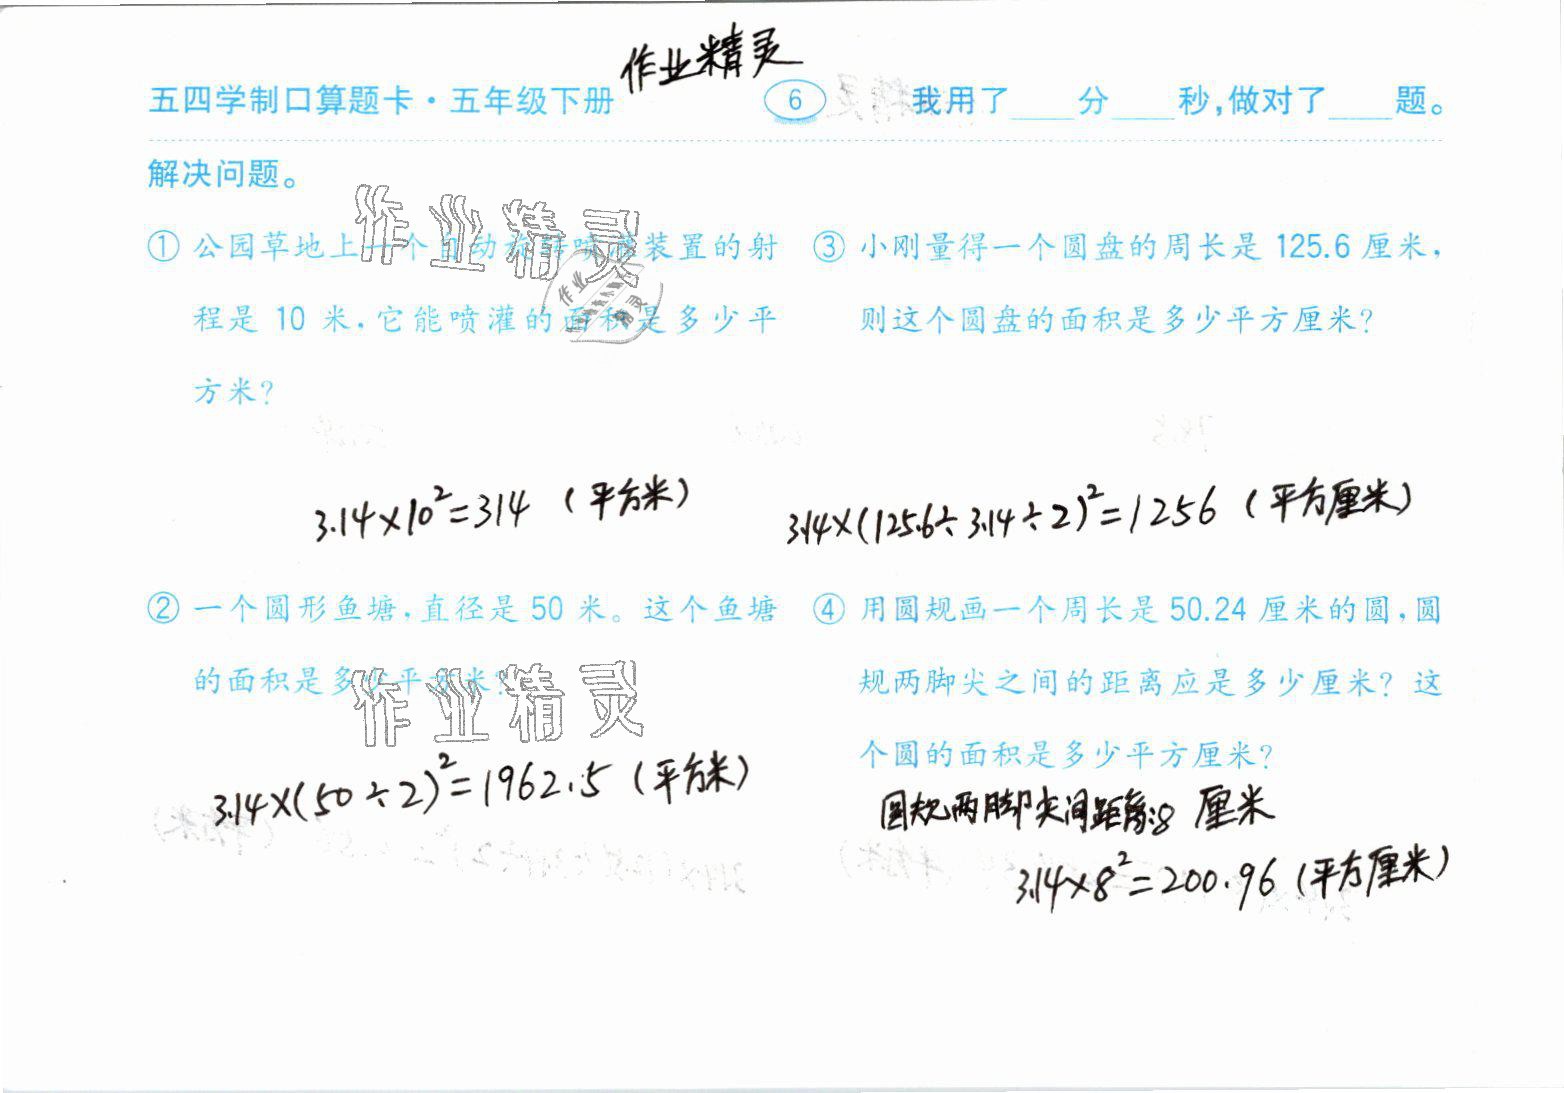 作业精灵
五四学制口算题卡·五年级下册 6 我用了____分____秒,做对了____题。
解决问题。
① 公园草地上一个自动旋转喷灌装置的射
程是 10 米,它能喷灌的面积是多少平
方米?
3.14×10²=314 (平方米)
② 一个圆形鱼塘,直径是 50 米。这个鱼塘
的面积是多少平方米?
3.14×(50÷2)²=1962.5 (平方米)
③ 小刚量得一个圆盘的周长是 125.6 厘米,
则这个圆盘的面积是多少平方厘米?
3.14×(125.6÷3.14÷2)²=1256 (平方厘米)
④ 用圆规画一个周长是 50.24 厘米的圆,圆
规两脚尖之间的距离应是多少厘米? 这
个圆的面积是多少平方厘米?
圆规两脚尖间距离:8 厘米
3.14×8²=200.96 (平方厘米)
作业精灵
作业
精灵
作业精灵